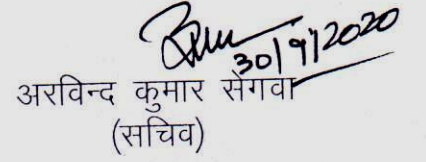 30/9/2020
अरविन्द कुमार सेंगवा
(सचिव)